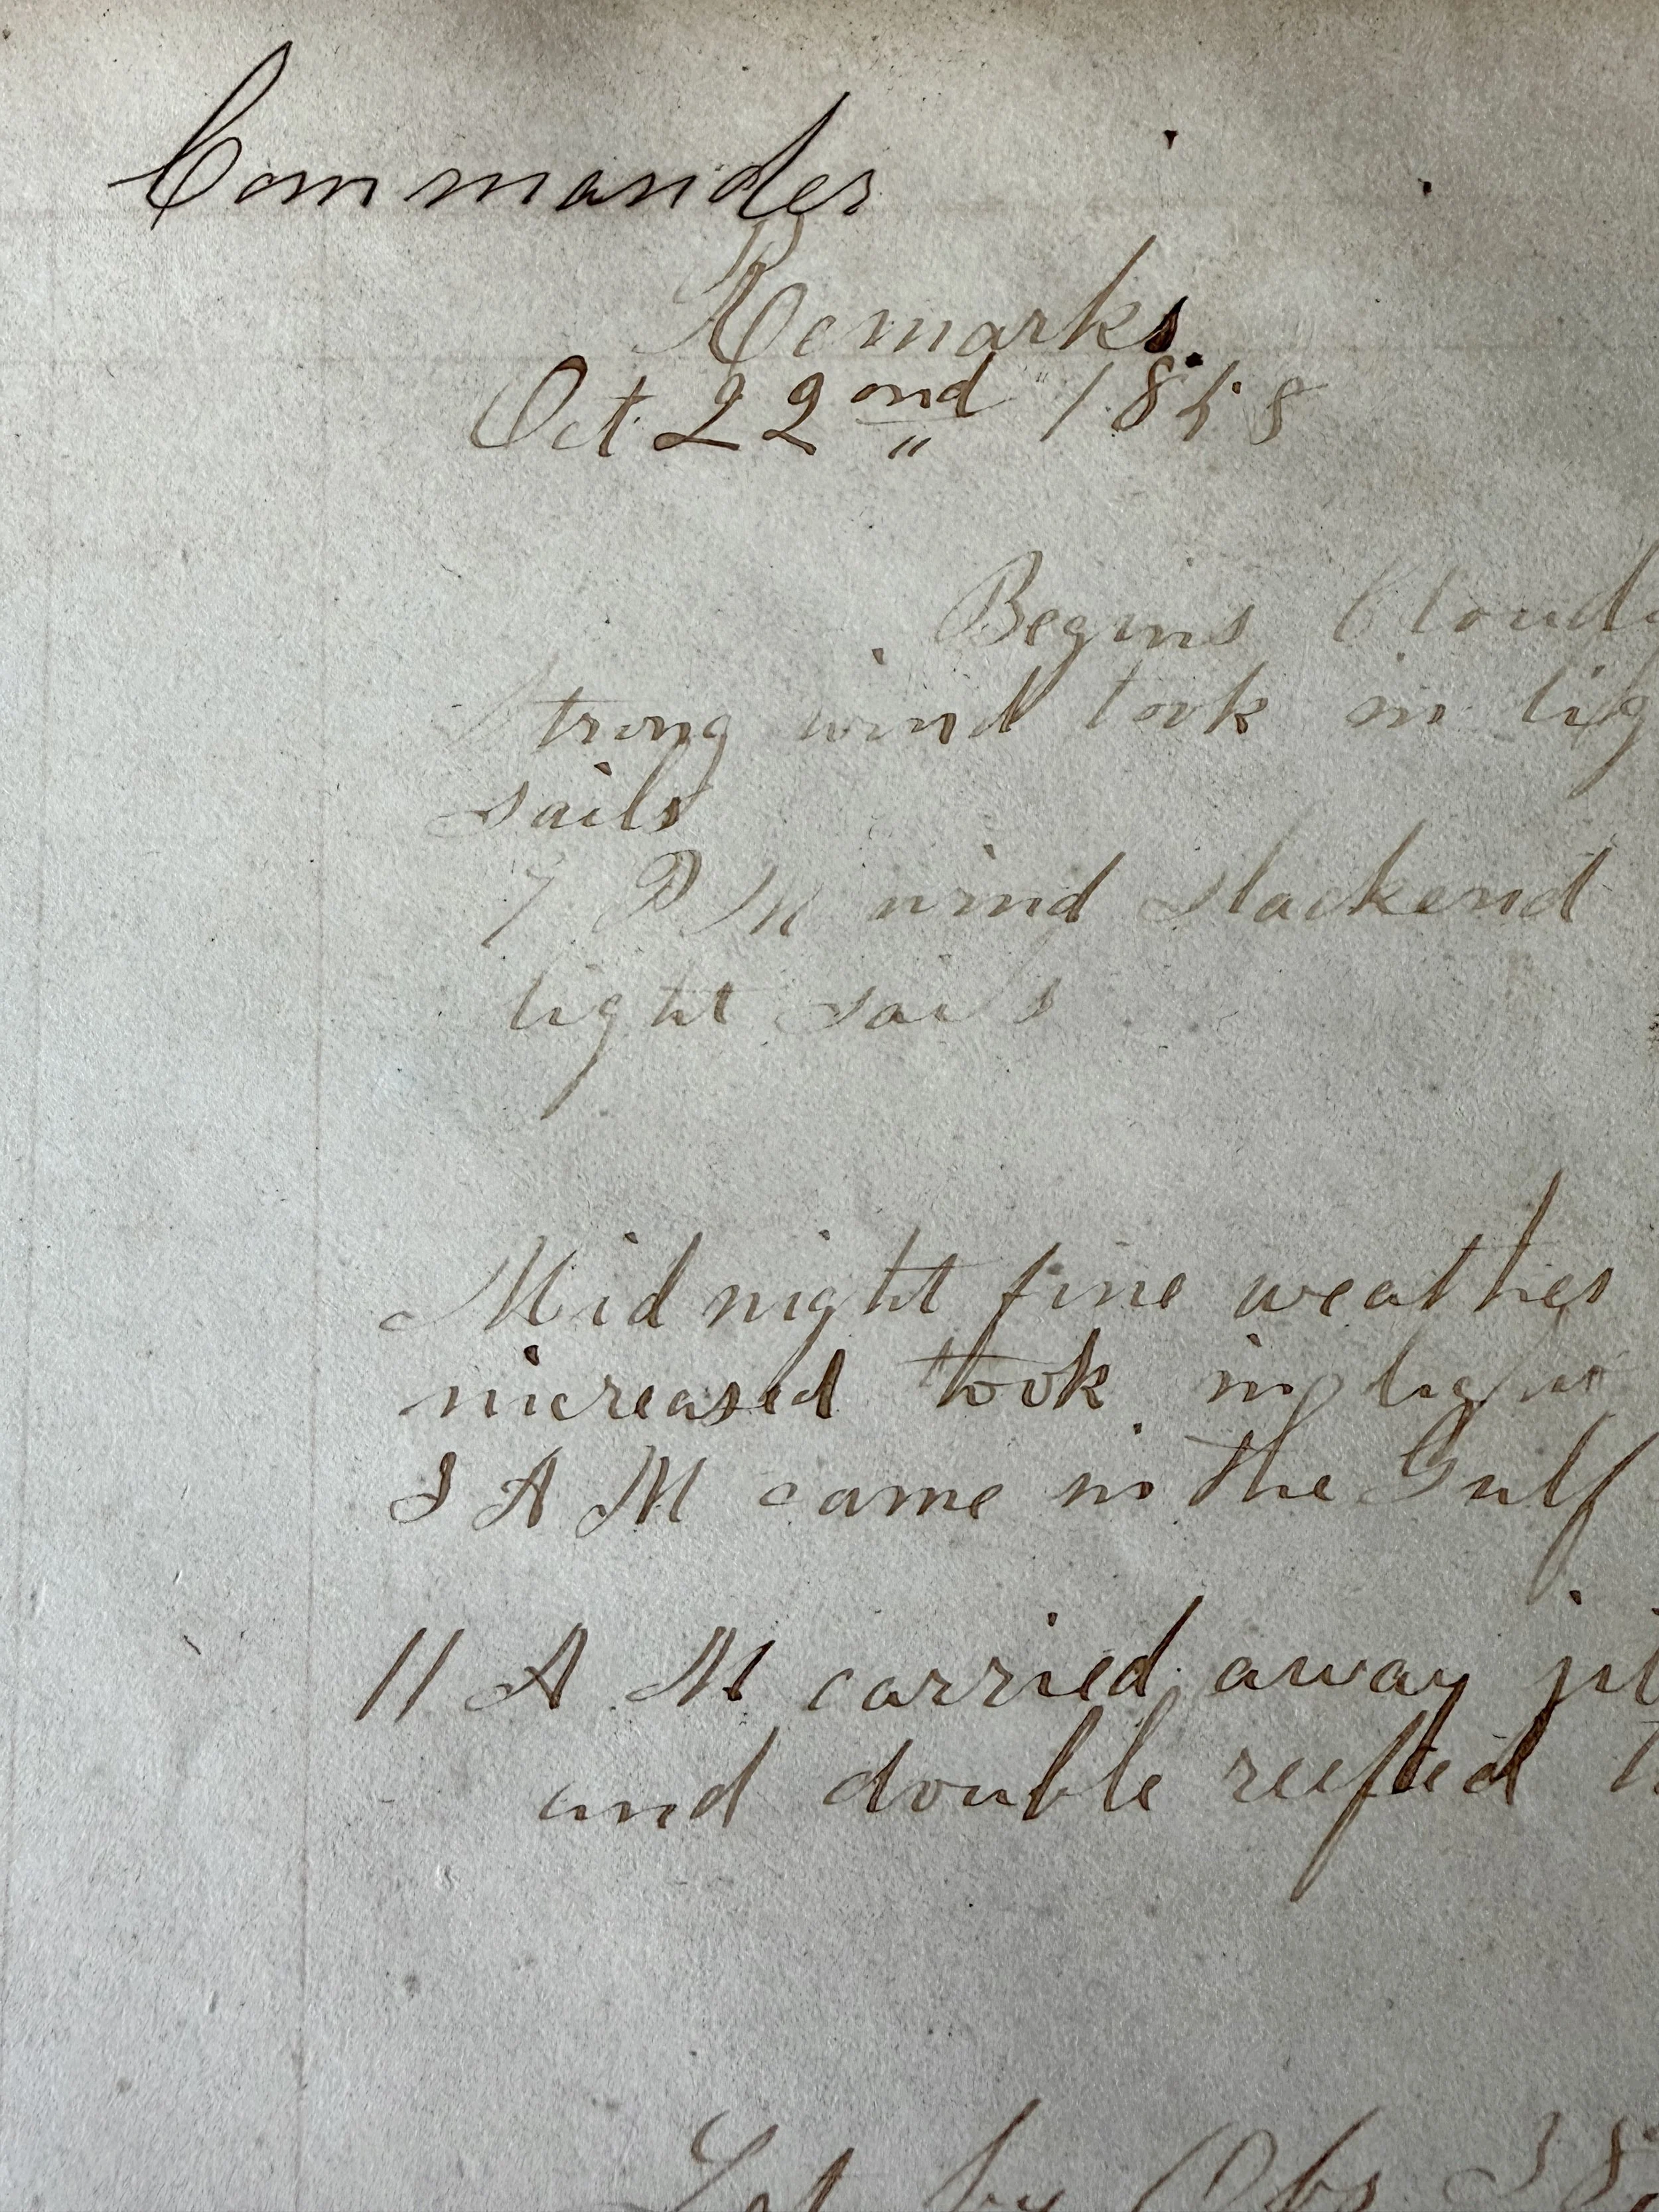 Commander
Remarks.
Oct 22ond 1858
Begins Cloudy
Strong wind took in lig
sails
7 P M wind slackend
light sails
Mid night fine weather
increased took in light
8 A M came in the Gulf
11 A M carried away
and double reefted
Lat by Obs 38